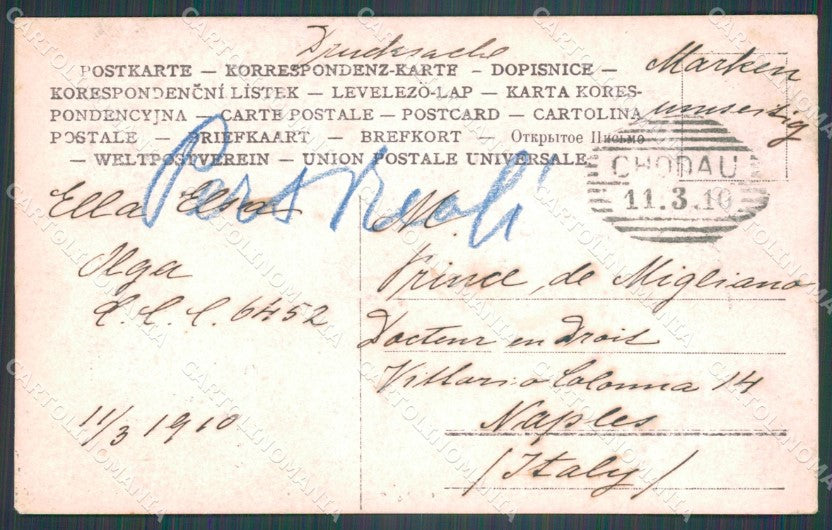 Drucksache
Marken
umseitig
POSTKARTE — KORRESPONDENZ-KARTE — DOPISNICE —
KORESPONDENČNÍ LÍSTEK — LEVELEZŐ-LAP — KARTA KORES-
PONDENCYJNA — CARTE POSTALE — POSTCARD — CARTOLINA
POSTALE — BRIEFKAART — BREFKORT — Открытое Письмо
— WELTPOSTVEREIN — UNION POSTALE UNIVERSELLE
CHODAU
11.3.10
Ella Elsa
Olga
L.C.C. 6452
11/3 1910
M.
Prince de Migliano
Docteur en Droit
Vittorio Colonna 14
Naples
(Italy)
CARTOLINOMANIA